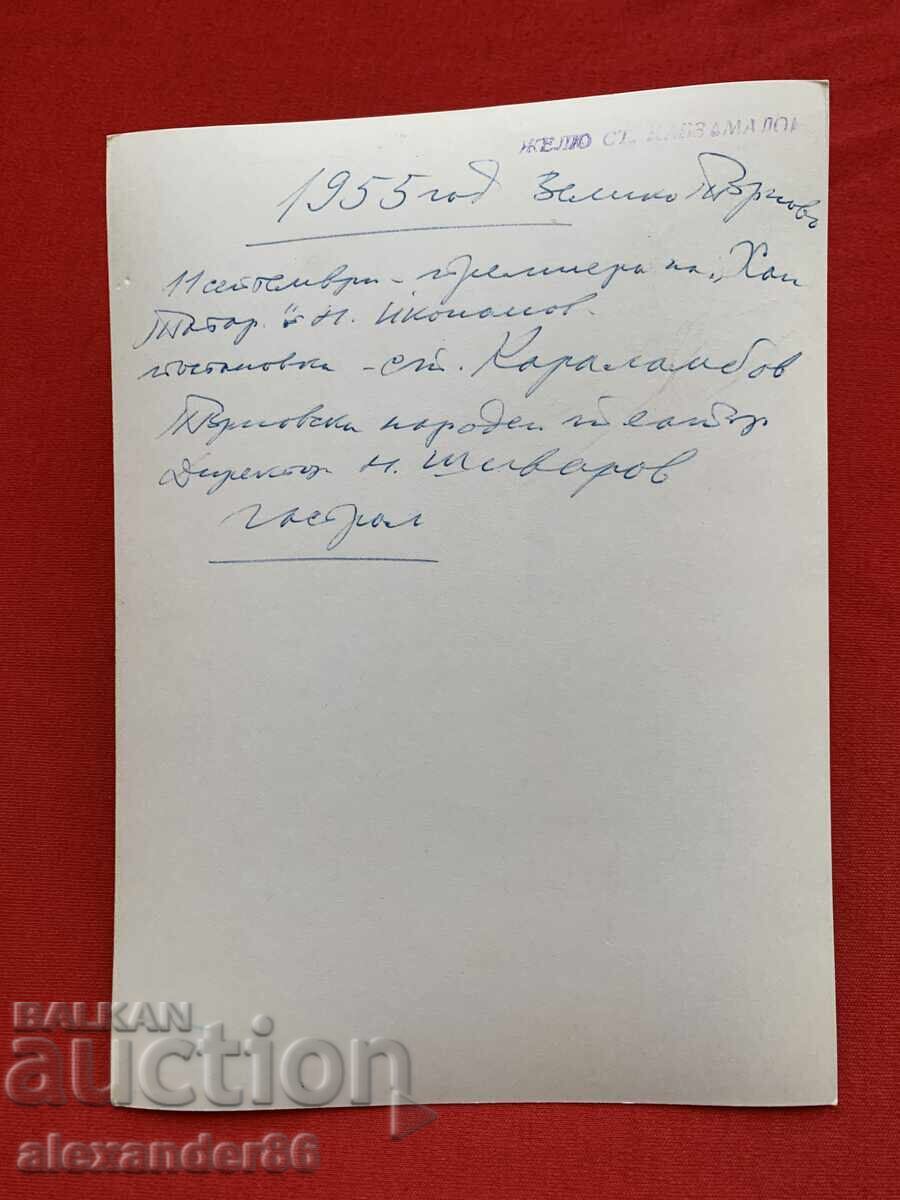 ЖЕЛЮ СТ.
1955 год Велико Търново
11 септември - премиера на "Хан
Татар" - Н. Икономов.
постановка - Ст. Караламбов
Търновски народен театър
Директор Н. Шиваров
гастрол
BALKAN
auction
alexander86